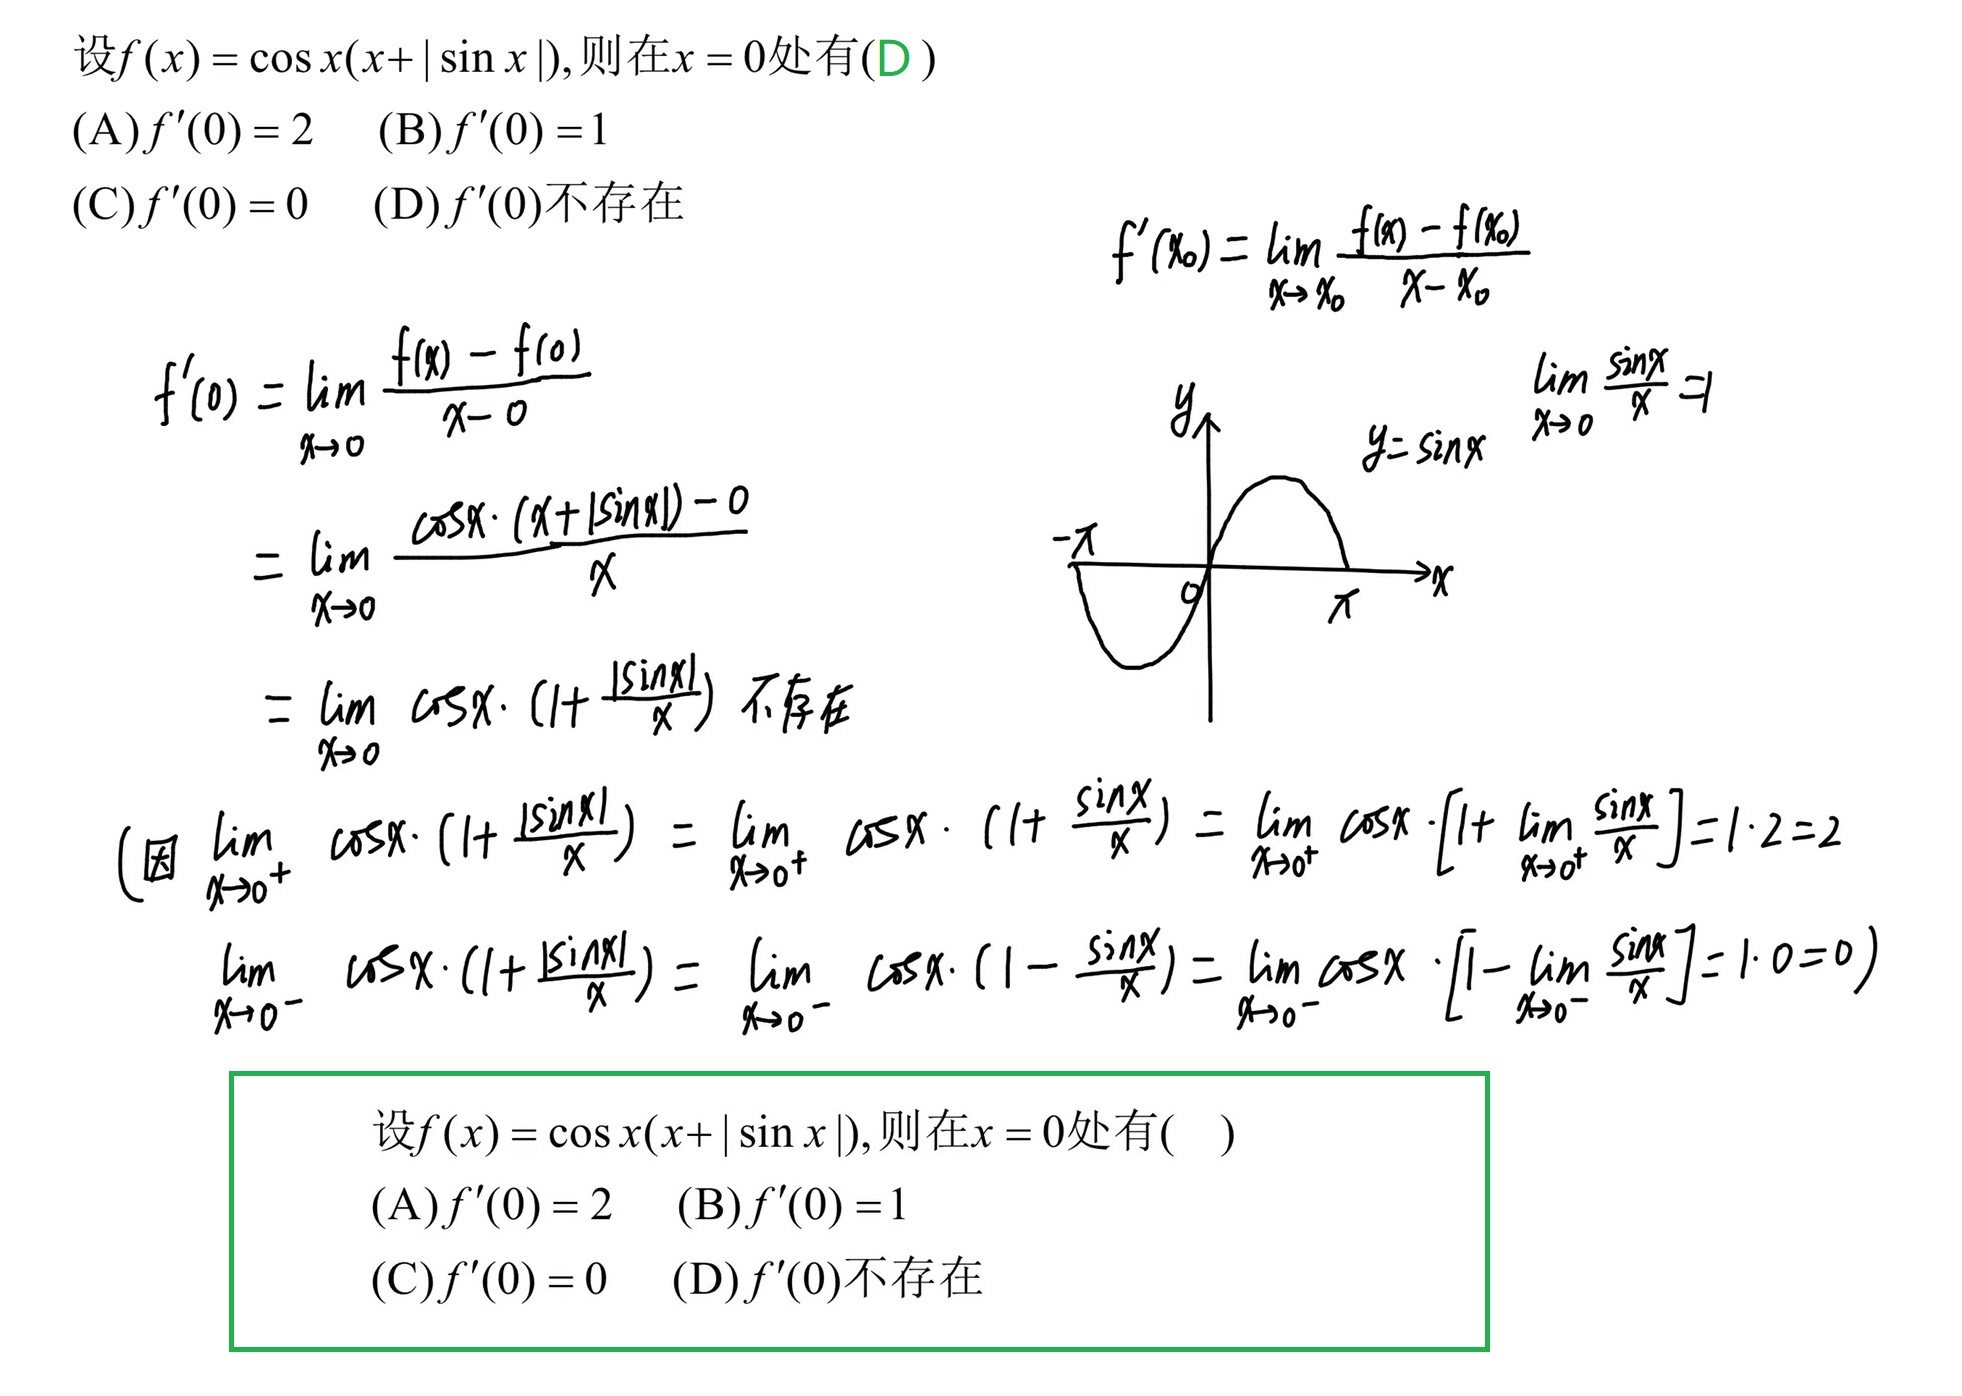 设f(x) = cos x(x+|sin x|),则在x = 0处有(D)
(A)f′(0) = 2 (B)f′(0) = 1
(C)f′(0) = 0 (D)f′(0)不存在
f′(x₀) = lim_{x→x₀} (f(x) − f(x₀))/(x − x₀)
f′(0) = lim_{x→0} (f(x) − f(0))/(x − 0)
lim_{x→0} sinx/x = 1
y
y = sinx
= lim_{x→0} (cosx·(x+|sinx|) − 0)/x
−π
0
π
x
= lim_{x→0} cosx·(1+|sinx|/x) 不存在
(因 lim_{x→0⁺} cosx·(1+|sinx|/x) = lim_{x→0⁺} cosx·(1+sinx/x) = lim_{x→0⁺} cosx·[1+lim_{x→0⁺} sinx/x] = 1·2 = 2
lim_{x→0⁻} cosx·(1+|sinx|/x) = lim_{x→0⁻} cosx·(1−sinx/x) = lim_{x→0⁻} cosx·[1−lim_{x→0⁻} sinx/x] = 1·0 = 0)
设f(x) = cos x(x+|sin x|),则在x = 0处有( )
(A)f′(0) = 2 (B)f′(0) = 1
(C)f′(0) = 0 (D)f′(0)不存在